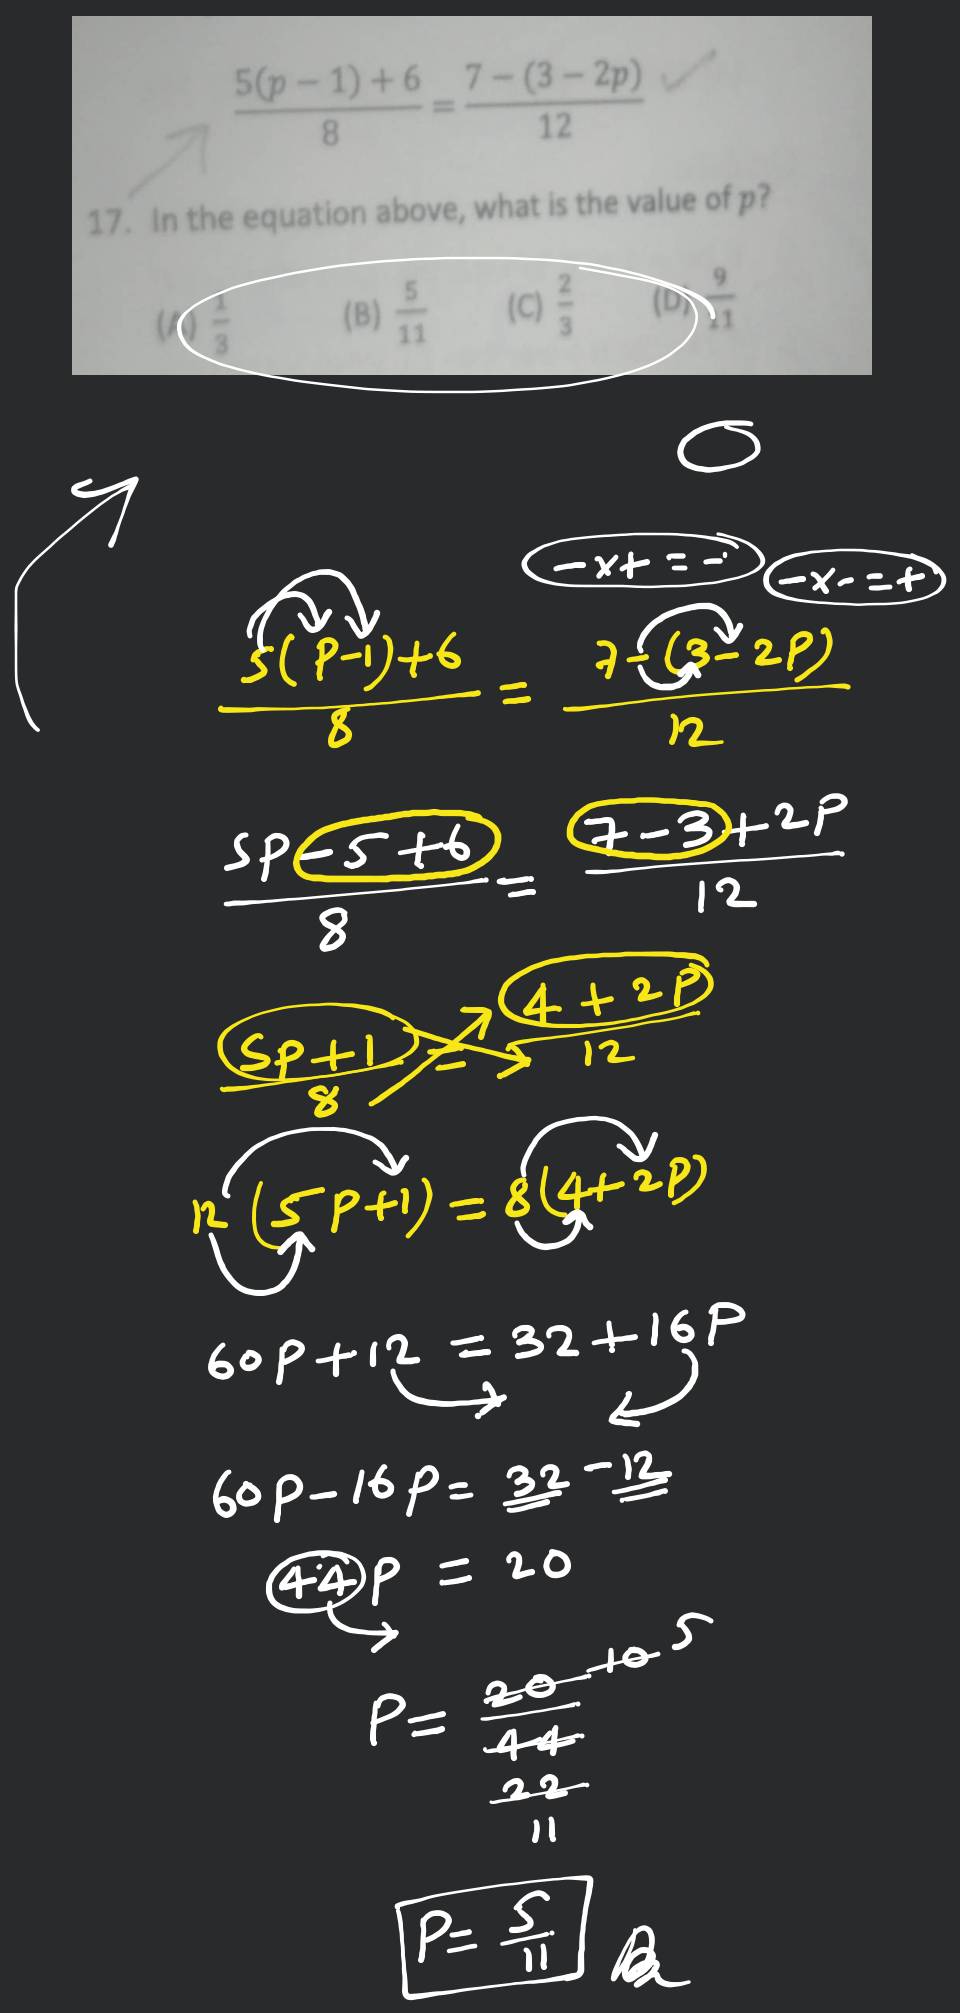 5(p − 1) + 6 / 8 = 7 − (3 − 2p) / 12
17. In the equation above, what is the value of p?
(A) 1/3 (B) 5/11 (C) 2/3 (D) 9/11
-x+ = -
-x- = +
5(P-1)+6 / 8 = 7-(3-2P) / 12
5P-5+6 / 8 = 7-3+2P / 12
5P+1 / 8 = 4+2P / 12
12(5P+1) = 8(4+2P)
60P+12 = 32+16P
60P-16P = 32-12
44P = 20
P = 20 10 5 / 44 22 11
P = 5/11 B